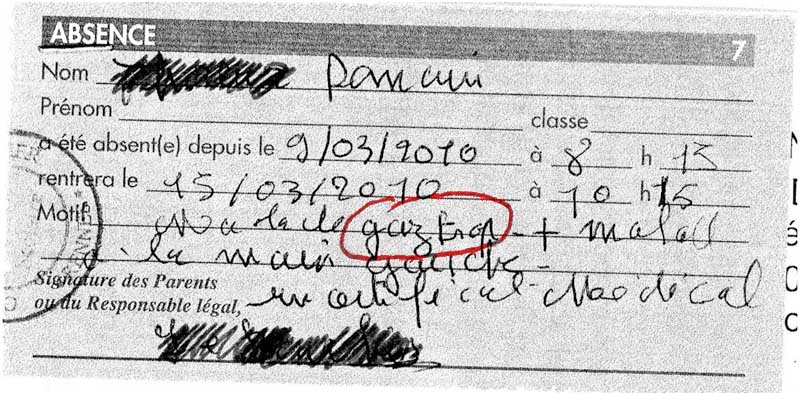 ABSENCE 7
Nom
Prénom classe
a été absent(e) depuis le 9/03/2010 à 8 h 15
rentrera le 15/03/2010 à 10 h 15
Motif Malade gaztrop + malad
a la main gauche
Signature des Parents
ou du Responsable légal, un certificat Médical